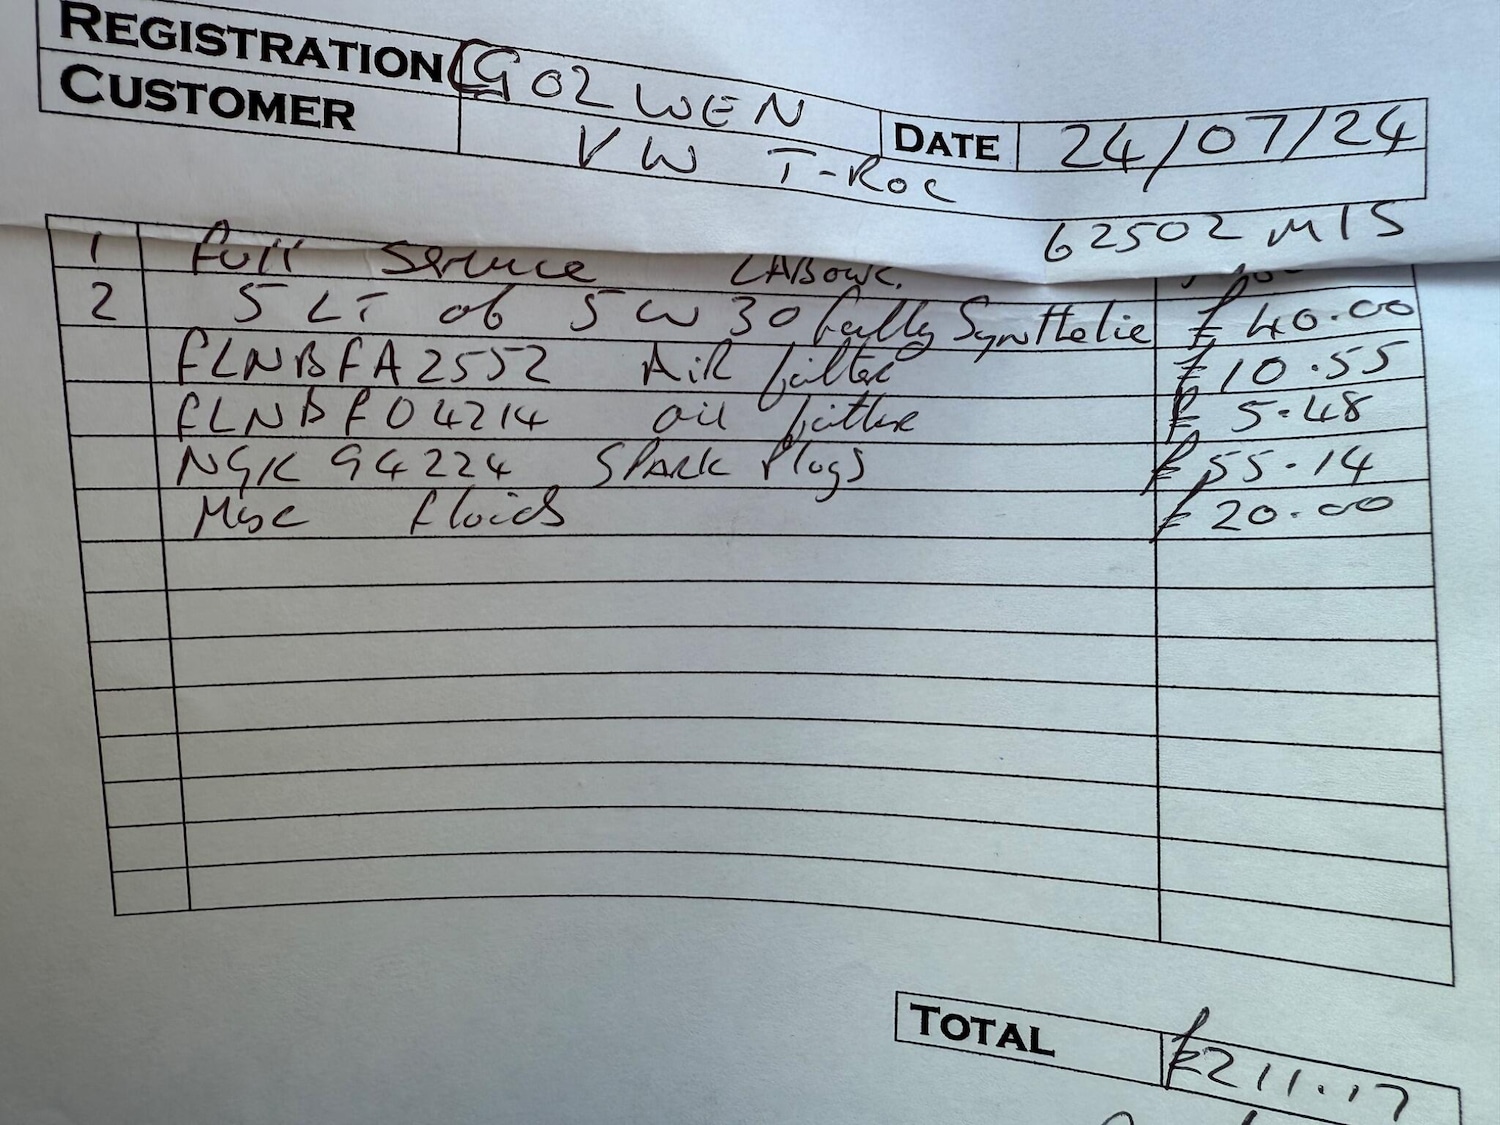 REGISTRATION GO2 WEN
DATE 24/07/24
CUSTOMER VW T-ROC
62502 MIS
1 Full Service LABOUR.
2 5 LT of 5W30 fully Synthetic £40.00
FLNBFA2552 Air filter £10.55
FLNBFO4214 oil filter £5.48
NGK 94224 SPARK Plugs £55.14
Misc fluids £20.00
TOTAL £211.17